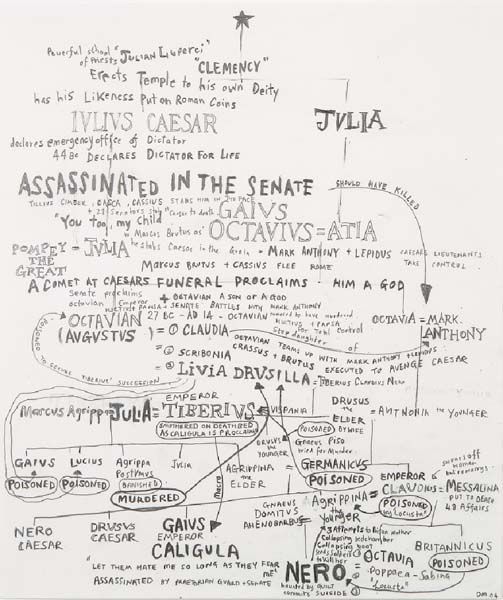 Powerful school "JULIAN Luperci"
of priests
"CLEMENCY"
Erects Temple to his own Deity
has his Likeness Put on Roman Coins
IVLIVS CAESAR
JVLIA
declares emergency office of Dictator
44 BC DECLARES DICTATOR FOR LIFE
ASSASSINATED IN THE SENATE
SHOULD HAVE KILLED
TILLIUS CIMBER, CASCA, CASSIUS STABS HIM IN THE FACE
+ 28 Senators stab Caesar to death
GAIUS
"You too, my Child"
"Marcus Brutus as he stabs Caesar in the Groin
OCTAVIUS = ATIA
POMPEY = JULIA
THE GREAT
MARK ANTHONY + LEPIDUS CAESARS LIEUTENANTS TAKE CONTROL
MARCUS BRUTUS + CASSIUS FLEE ROME
A COMET AT CAESARS FUNERAL PROCLAIMS - HIM A GOD
Senate proclaims
octavian Emperor
+ OCTAVIAN A SON OF A GOD
+ SENATE BATTLES WITH MARK ANTHONY
OCTAVIAN 27 BC - AD 14 - OCTAVIAN
(AUGUSTUS)
for Total Control
OCTAVIA = MARK ANTHONY
= ① CLAUDIA
Step daughter of
OCTAVIAN TEAMS UP WITH MARK ANTHONY + LEPIDUS
CRASSUS + BRUTUS EXECUTED TO AVENGE CAESAR
= ② SCRIBONIA
= ③ LIVIA DRUSILLA = TIBERIUS CLAUDIUS NERO
DIVORCED TO SECURE TIBERIUS' SUCCESSION
EMPEROR
Marcus Agrippa JULIA = TIBERIUS = VISPANIA
DRUSUS the ELDER = ANTNONIA the YOUNGER
SMOTHERED ON DEATHBED
AS CALIGULA IS PROCLAIMED
POISONED BY WIFE
DRUSUS the YOUNGER
GNAEUS PISO
tried for Murder
GAIUS
POISONED
LUCIUS
POISONED
Agrippa POSTUMUS
(BANISHED)
MURDERED
JULIA
Macro
AGRIPPINA the ELDER =
GERMANICUS
POISONED
EMPEROR
CLAUDIUS = MESSALINA
POISONED
by Locusta
PUT TO DEATH
48 Affairs
swears off women
but remarrys
GNAEUS DOMITUS AHENOBARBUS =
AGRIPPINA the YOUNGER =
3 Attempts
Collapsing bedchamber
Collapsing boat
Sends soldiers to kill her
NERO CAESAR
DRUSUS CAESAR
GAIUS
EMPEROR
CALIGULA
"LET THEM HATE ME SO LONG AS THEY FEAR ME"
ASSASSINATED BY PRAETORIAN GUARD + SENATE
NERO
= ① OCTAVIA
= ② Poppaea - Sabina
"Locusta"
BRITANNICUS
POISONED
haunted by guilt
commits SUICIDE
DM. 06